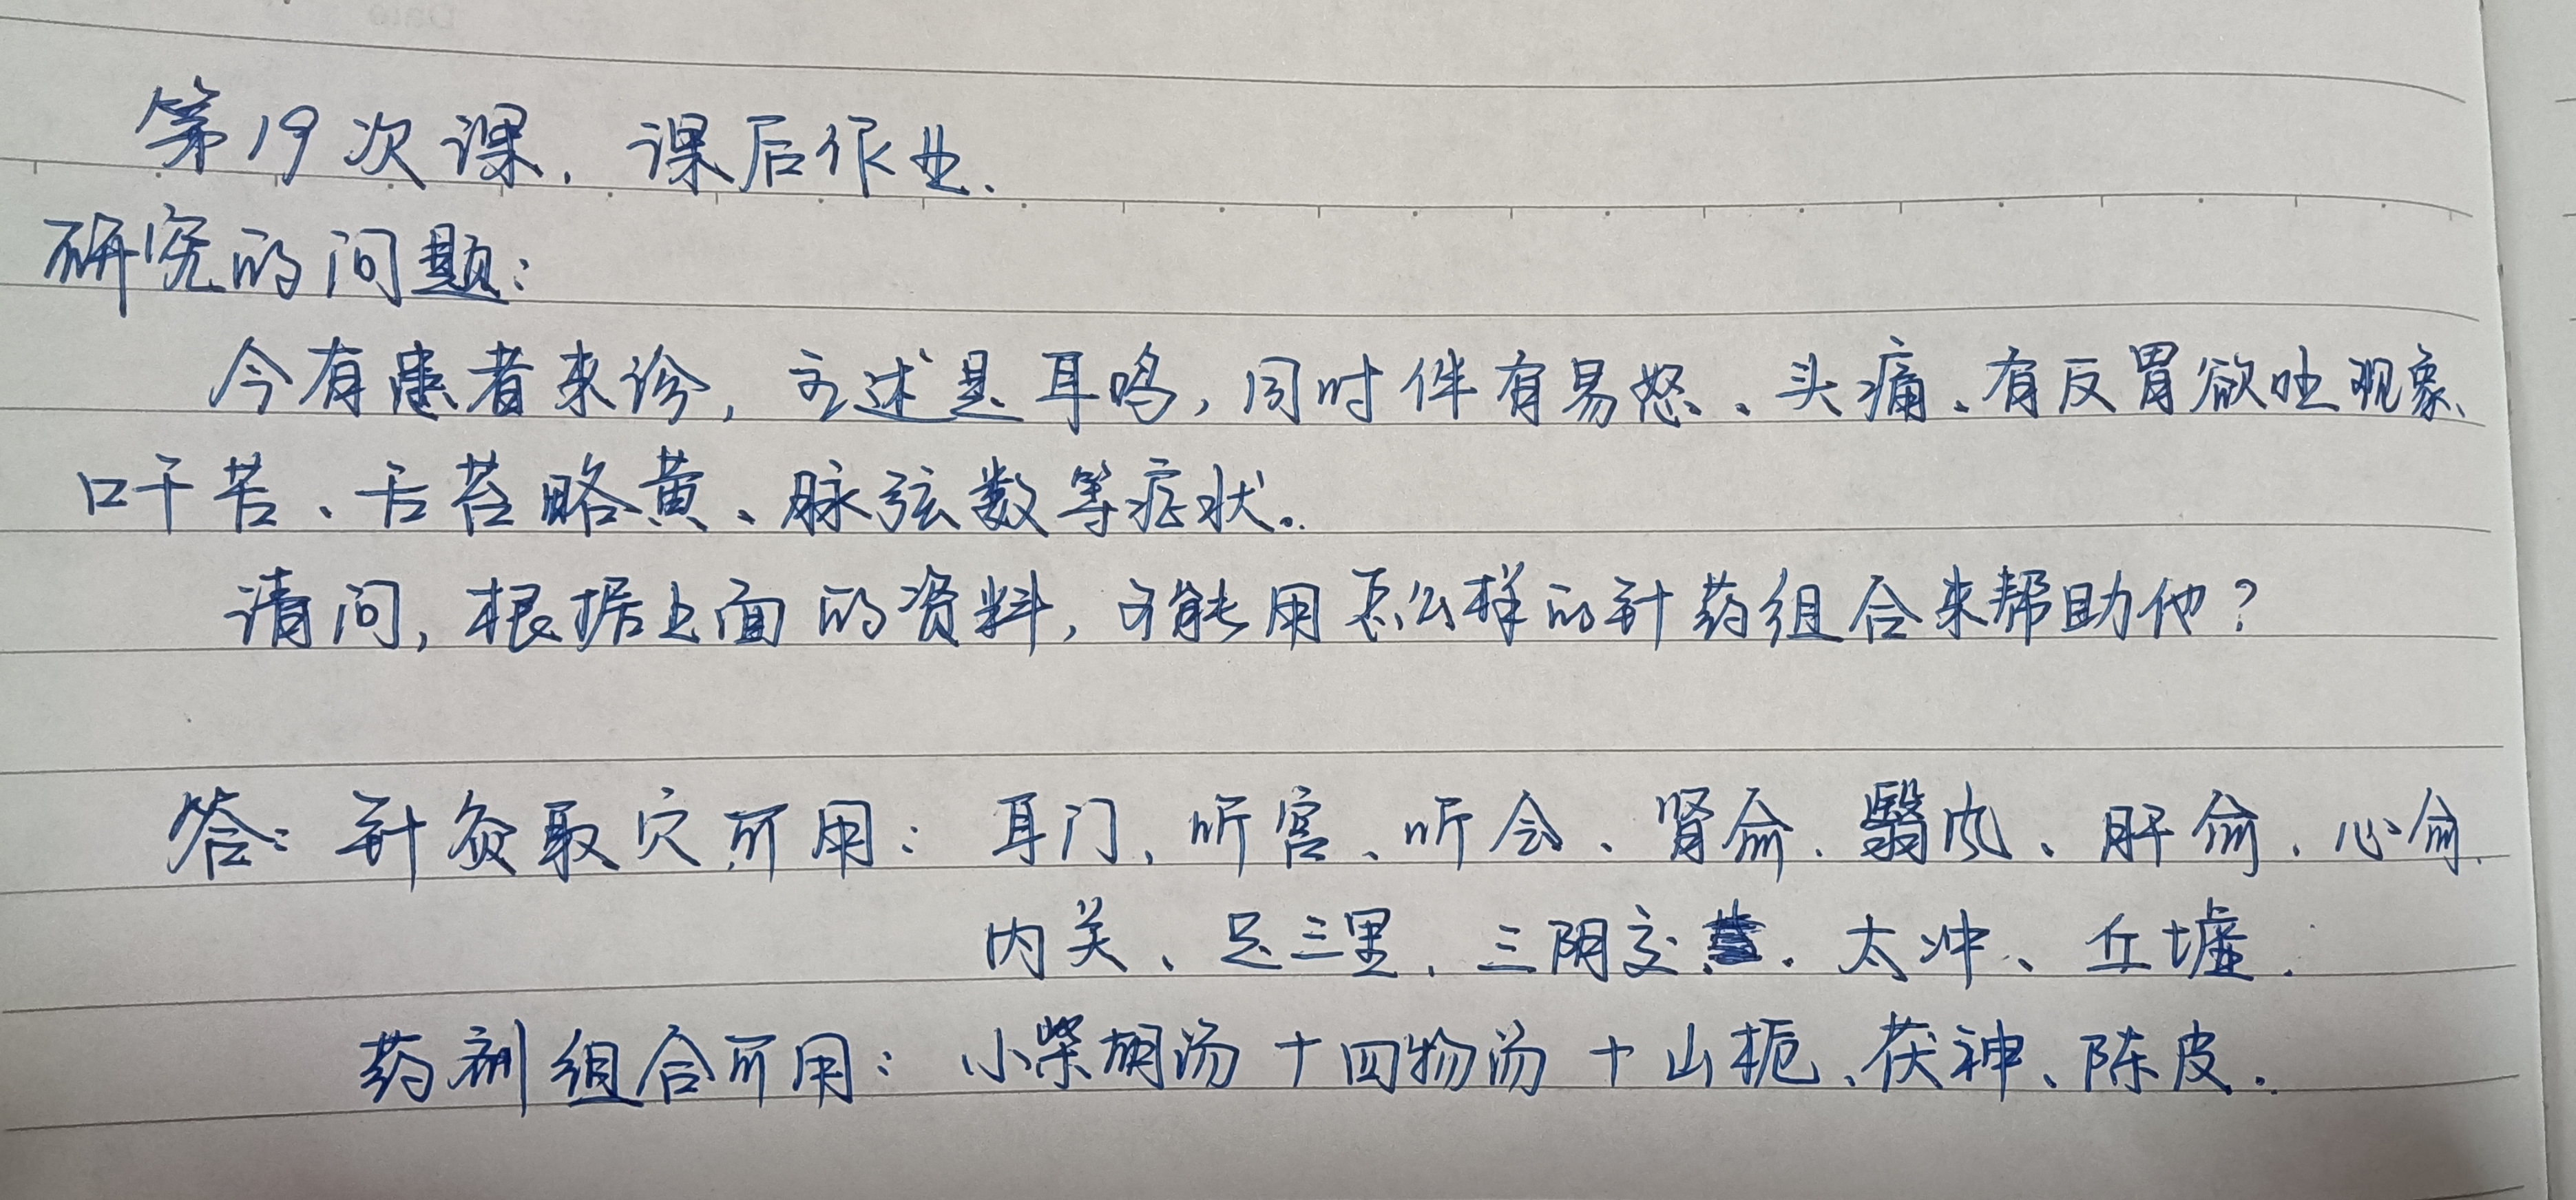 第19次课，课后作业.
研究的问题：
今有患者来诊，主述是耳鸣，同时伴有易怒、头痛、有反胃欲吐现象、
口干苦、舌苔略黄、脉弦数等症状。
请问，根据上面的资料，可能用怎么样的针药组合来帮助他？
答：针灸取穴可用：耳门、听宫、听会、肾俞、翳风、肝俞、心俞、
内关、足三里、三阴交、太冲、丘墟.
药剂组合可用：小柴胡汤+四物汤+山栀、茯神、陈皮.